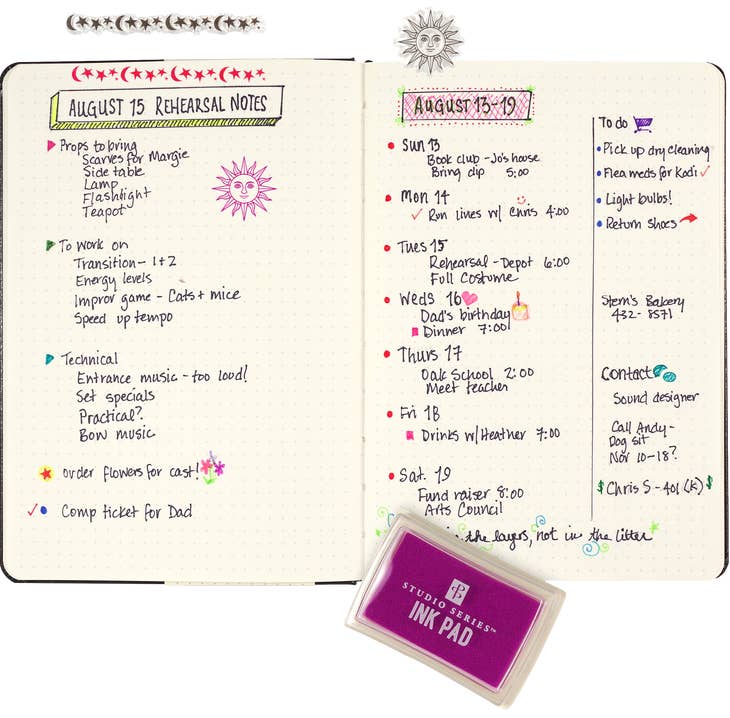 AUGUST 15 REHEARSAL NOTES
Props to bring
Scarves for Margie
Side table
Lamp
Flashlight
Teapot
To Work on
Transition - 1+2
Energy levels
Improv game - Cats + mice
Speed up tempo
Technical
Entrance music - too loud!
Set specials
Practical?
Bow music
order flowers for cast!
Comp ticket for Dad
AUGUST 13-19
Sun 13
Book club - Jo's house
Bring dip 5:00
Mon 14
Run lines w/ Chris 4:00
Tues 15
Rehearsal - Depot 6:00
Full Costume
Weds 16
Dad's birthday
Dinner 7:00
Thurs 17
Oak School 2:00
Meet teacher
Fri 18
Drinks w/ Heather 7:00
Sat. 19
Fund raiser 8:00
Arts Council
the layers, not in the litter
To do
Pick up dry cleaning
Flea meds for Kodi
Light bulbs!
Return shoes
Stern's Bakery
432-8571
Contact
Sound designer
Call Andy-
Dog sit
Nov 10-18?
$ Chris S - 401 (K) $
STUDIO SERIES™
INK PAD